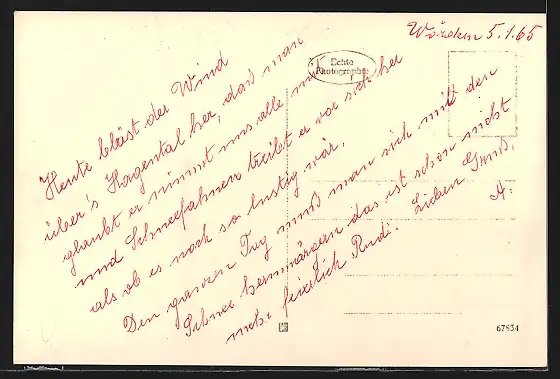 Wörden 5.1.65
Echte
Photographie
Heute bläst der Wind
über's Horgental her, das man
glaubt er nimmt uns alle mit
und Schneefahnen treibt er vor sich her
als ob es noch so lustig wär.
Den ganzen Tag muß man sich mit den
Schnee herumärgern das ist schon nicht
mehr feierlich Rudi. Lieben Gruß,
A.
67834